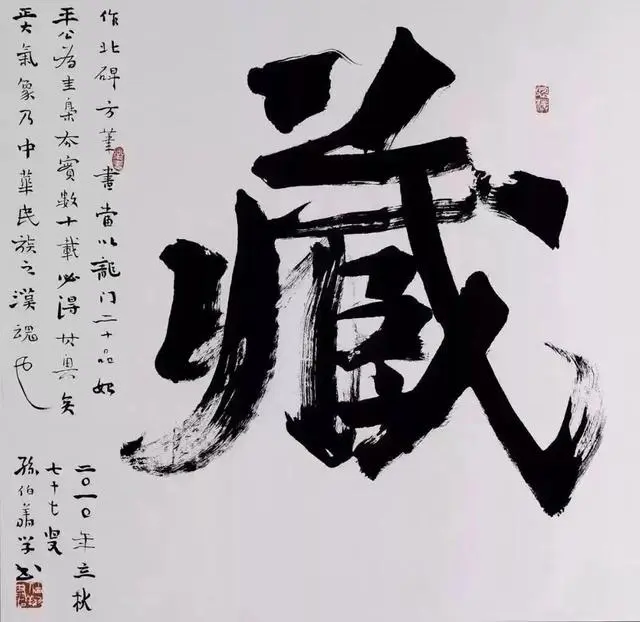 藏
作北碑方筆書當以龍门二十品始
平公為圭臬夯實數十載必得其奥矣
正大氣象乃中華民族之漢魂也
二〇一〇年立秋
七十七叟
孫伯翔学书